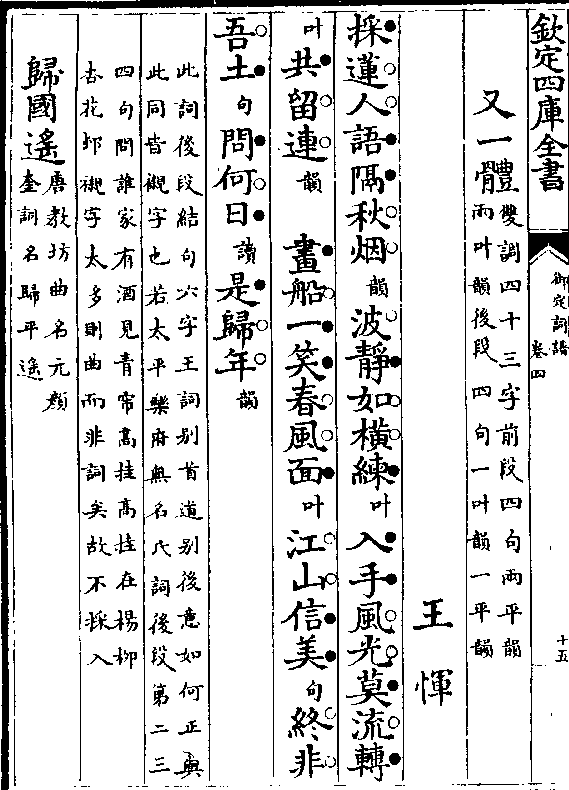 欽定四庫全書
御定詞譜
卷四
十五
又一體
雙調四十三字前段四句兩平韻
兩叶韻後段四句一叶韻一平韻
王惲
採蓮人語隔秋烟韻波靜如橫練叶入手風光莫流轉
叶共留連韻 畫船一笑春風面叶江山信美句終非
吾土句問何日讀是歸年韻
此詞後段結句六字王詞别首道别後意如何正與
此同皆襯字也若太平樂府無名氏詞後段第二三
四句問誰家有酒見青帘高挂高挂在楊柳
杏花邨襯字太多則曲而非詞矣故不採入
歸國遙
唐教坊曲名元顔
奎詞名歸平遙